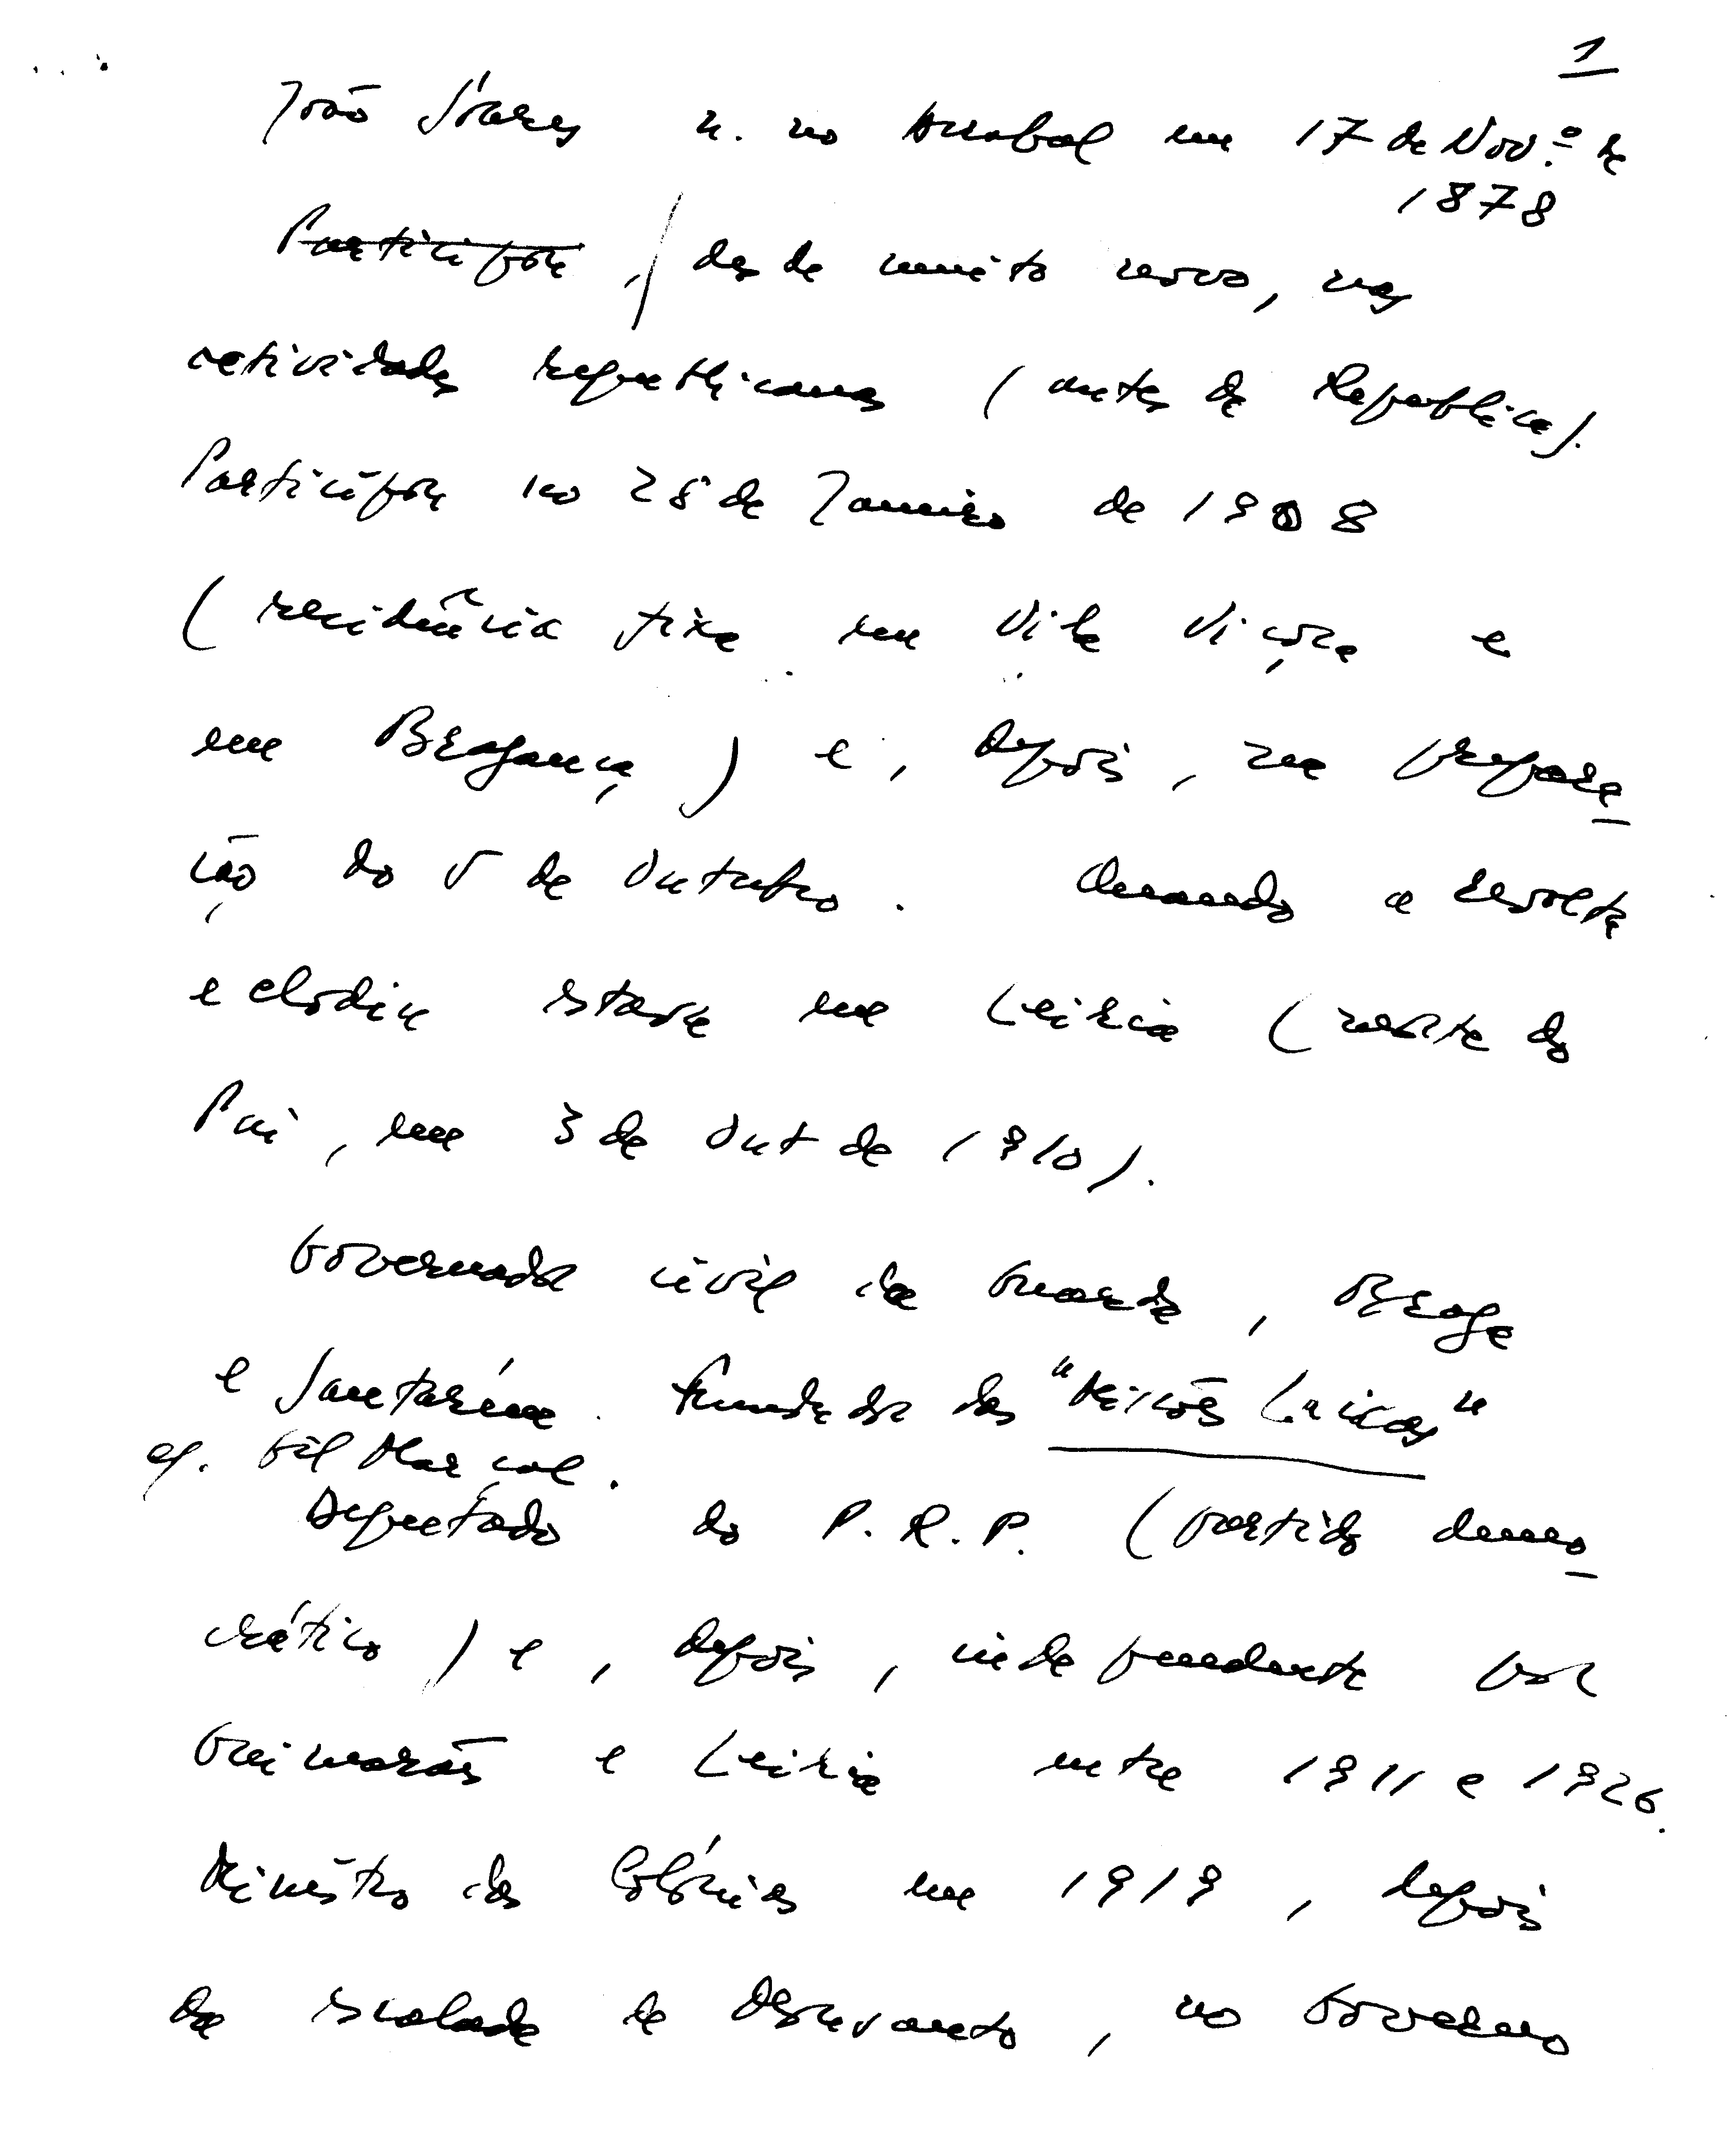 1
João Soares n. no Arrabal em 17 de Nov.º de
1878
Participou, / desde muito novo, nas
actividades republicanas (antes da República).
Participou no 28 de Janeiro de 1908
(residência fixa em Vila Viçosa e
em Bragança) e, depois, na prepara-
ção do 5 de Outubro. Quando a revolta
eclodiu estava em Leiria (morte do
Pai, em 3 de Out de 1910).
Governador civil da Guarda, Braga
e Santarém. Fundador das "Missões Laicas"
cf. Gil Marçal.
Deputado do P.R.P. (partido demo-
crático) e, depois, independente por
Guimarães e Leiria entre 1911 e 1926.
Ministro das Colónias em 1919, depois
da escalada de Monsanto, no Governo